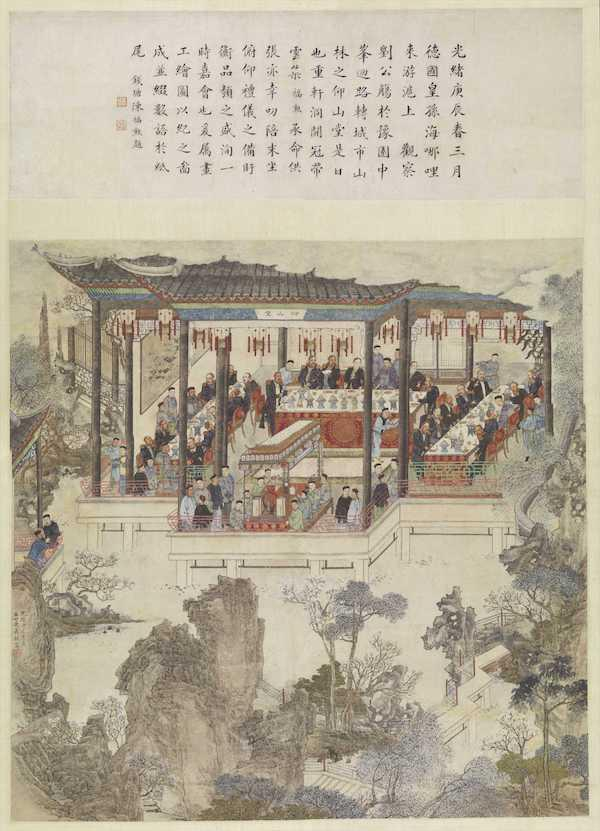 光緒庚辰春三月
德國皇孫海哪哩
來游滬上 觀察
劉公觴於豫園中
峯迴路轉城市山
林之仰山堂是日
也重軒洞開冠帶
雲 福勲承命供
張亦幸叨陪末坐
俯仰禮儀之備盱
衡品類之盛洵一
時嘉會也爰属畫
工繪圖以紀之啚
成並綴數語於紙
尾 錢塘陳福勲題
仰山堂